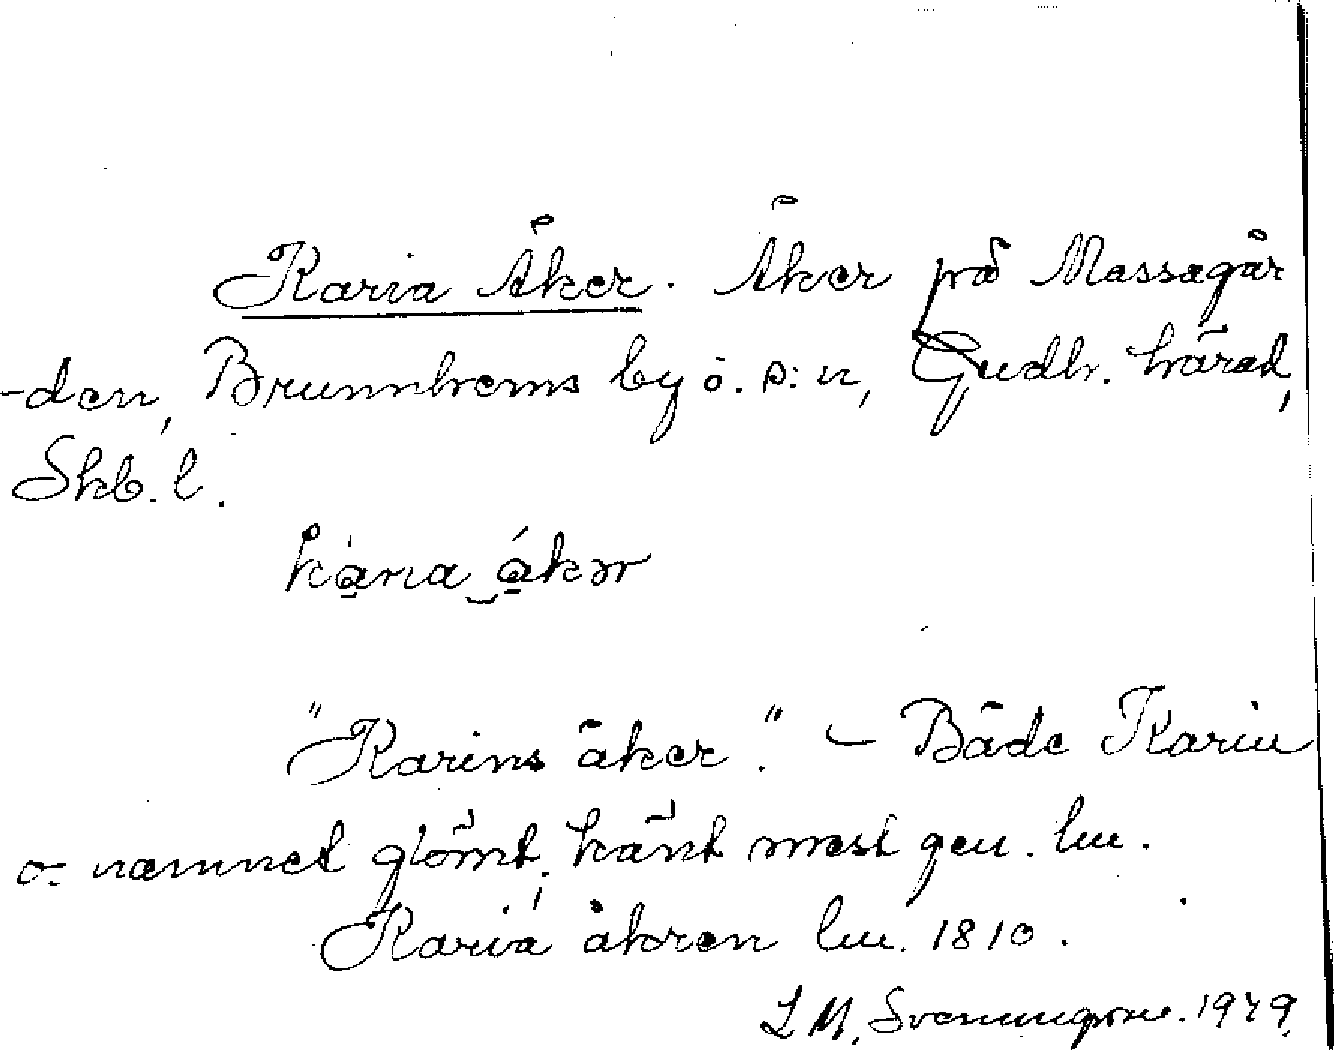 Karia Åker. Åker på Massagår
-den, Brunnhems by o. s:n, Gudh. härad,
Skb. l.
kària_ákər
"Karins åker". – Både Karin
o. namnet glömt; känt mest gen. lm.
Karia åkren lm. 1810.
L M. Svenungsson. 1949.